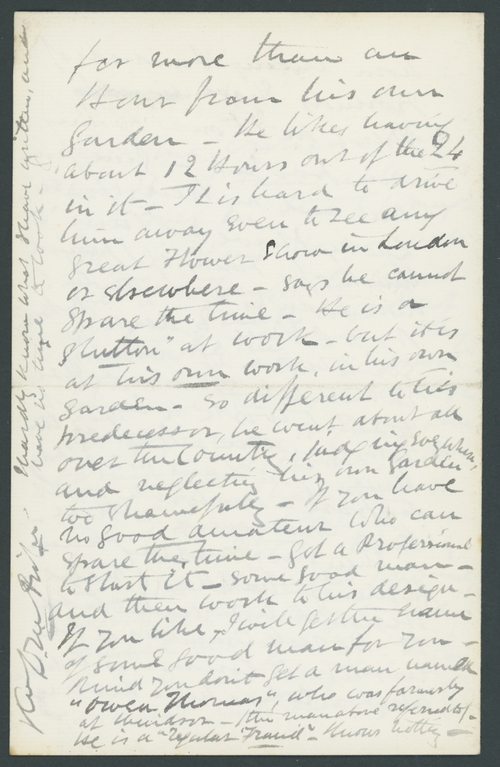 for more than an
Hour from his own
Garden - He likes having
about 12 Hours out of the 24
in it - It is hard to drive
him away even to see any
great Flower Show in London
or elsewhere - says he cannot
spare the time - He is a
"glutton" at work - but it is
at his own work, in his own
garden - so different to his
predecessor, he went about all
over the Country, judging
and neglecting his own Garden
too shamefully - If you have
no good amateur who can
spare the time - get a Professional
to start it - some good man -
and then work to his design -
If you like, I will get the name
of some good man for you -
Mind you don't get a man named
"Owen Thomas", who was formerly
at Windsor - the man above referred to/.
He is a "regular Fraud" - Knows nothing -
hardly know what I have written, and
have no time to look